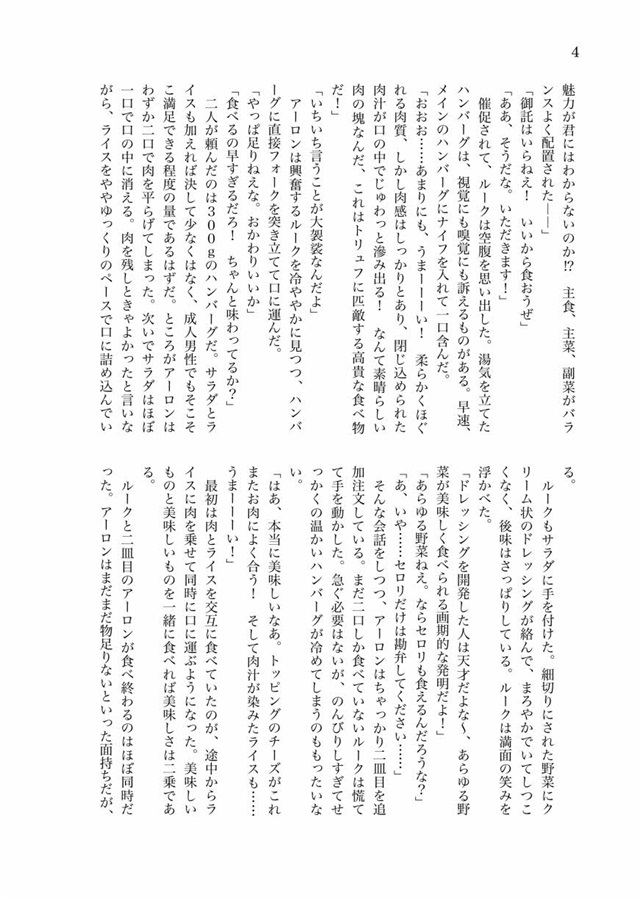 4
魅力が君にはわからないのか!?　主食、主菜、副菜がバラ
ンスよく配置された――」
「御託はいらねえ！　いいから食おうぜ」
「ああ、そうだな。いただきます！」
　催促されて、ルークは空腹を思い出した。湯気を立てた
ハンバーグは、視覚にも嗅覚にも訴えるものがある。早速、
メインのハンバーグにナイフを入れて一口含んだ。
「おおお……あまりにも、うまーーーい！　柔らかくほぐ
れる肉質、しかし肉感はしっかりとあり、閉じ込められた
肉汁が口の中でじゅわっと滲み出る！　なんて素晴らしい
肉の塊なんだ、これはトリュフに匹敵する高貴な食べ物
だ！」
「いちいち言うことが大袈裟なんだよ」
　アーロンは興奮するルークを冷ややかに見つつ、ハンバ
ーグに直接フォークを突き立てて口に運んだ。
「やっぱ足りねえな。おかわりいいか」
「食べるの早すぎるだろ！　ちゃんと味わってるか？」
　二人が頼んだのは３００ｇのハンバーグだ。サラダとラ
イスも加えれば決して少なくはなく、成人男性でもそこそ
こ満足できる程度の量であるはずだ。ところがアーロンは
わずか二口で肉を平らげてしまった。次いでサラダはほぼ
一口で口の中に消える。肉を残しときゃよかったと言いな
がら、ライスをややゆっくりのペースで口に詰め込んでい
る。
　ルークもサラダに手を付けた。細切りにされた野菜にク
リーム状のドレッシングが絡んで、まろやかでいてしつこ
くなく、後味はさっぱりしている。ルークは満面の笑みを
浮かべた。
「ドレッシングを開発した人は天才だよな～、あらゆる野
菜が美味しく食べられる画期的な発明だよ！」
「あらゆる野菜ねえ。ならセロリも食えるんだろうな？」
「あ、いや……セロリだけは勘弁してください……」
　そんな会話をしつつ、アーロンはちゃっかり二皿目を追
加注文している。まだ二口しか食べていないルークは慌て
て手を動かした。急ぐ必要はないが、のんびりしすぎてせ
っかくの温かいハンバーグが冷めてしまうのももったいな
い。
「はあ、本当に美味しいなあ。トッピングのチーズがこれ
またお肉によく合う！　そして肉汁が染みたライスも……
うまーーーい！」
　最初は肉とライスを交互に食べていたのが、途中からラ
イスに肉を乗せて同時に口に運ぶようになった。美味しい
ものと美味しいものを一緒に食べれば美味しさは二乗であ
る。
　ルークと二皿目のアーロンが食べ終わるのはほぼ同時だ
った。アーロンはまだまだ物足りないといった面持ちだが、